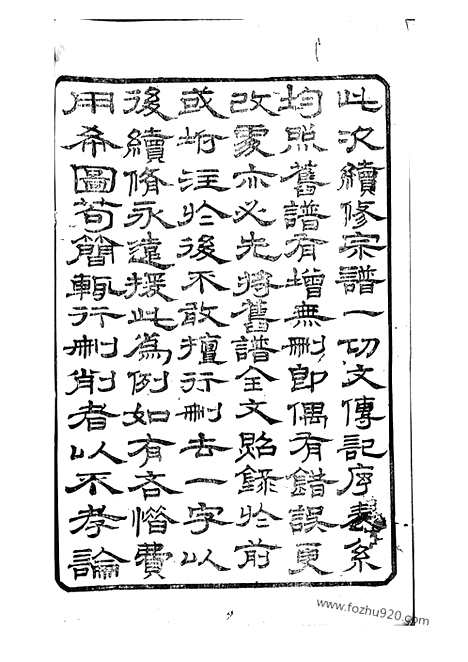 此次續修宗譜一切文傳記序表系
均照舊譜有增無刪即偶有錯誤更
改處亦必先將舊譜全文照錄於前
或坿注於後不敢擅行刪去一字以
後續脩永遠援此為例如有吝惜費
用希圖苟簡輒行刪削者以不孝論
www.fozhu920.com